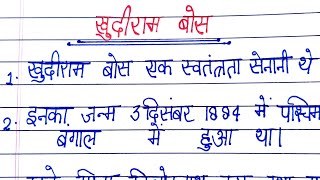 खुदीराम बोस
1. खुदीराम बोस एक स्वतंत्रता सेनानी थे
2. इनका जन्म 3 दिसंबर 1884 में पश्चिम
बगाल में हुआ था।